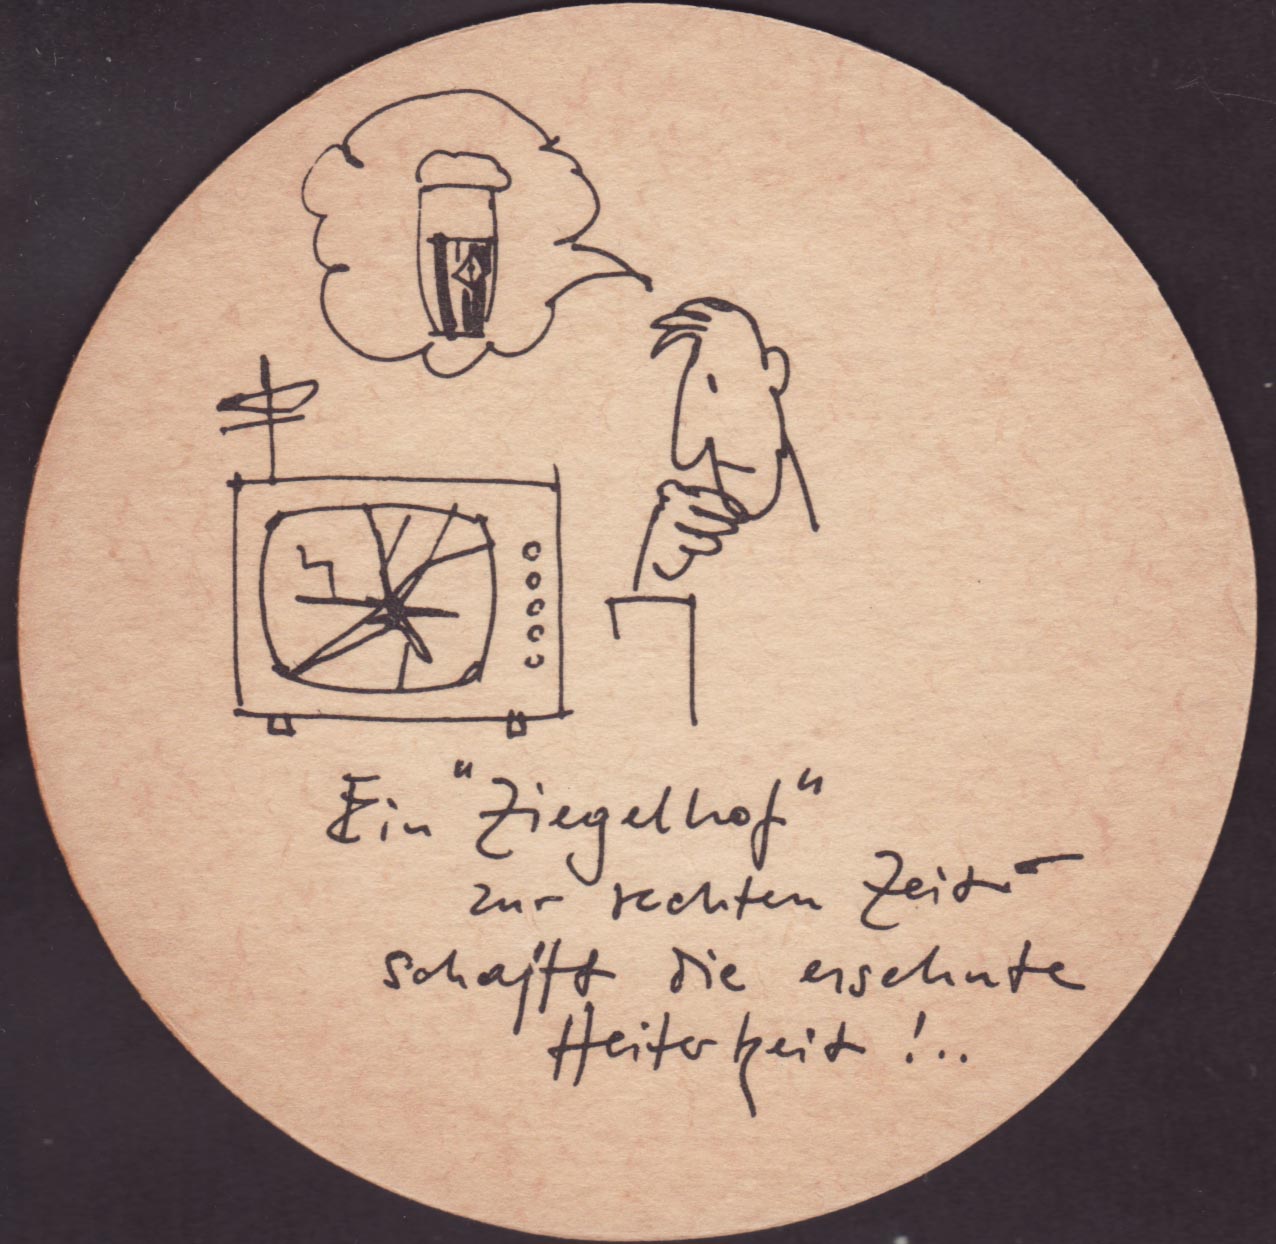 Ein "Ziegelhof"
zur rechten Zeit
schafft die ersehnte
Heiterkeit!..